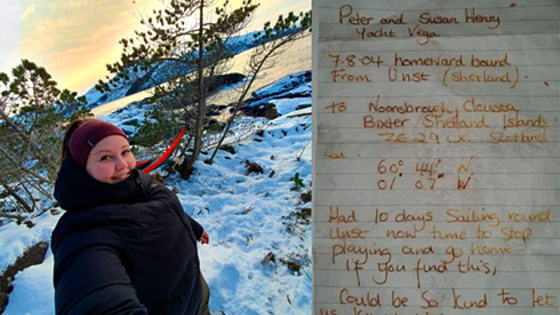 Peter and Susan Henry
Yacht Vega
7-8-04 homeward bound
From Unst (Shetland).
to
Bixter Shetland Islands
ZE2 9LX. Scotland
60° 44' N
01° 07' W
Had 10 days Sailing round
Unst now time to stop
playing and go home.
If you find this,
Could be So kind to let